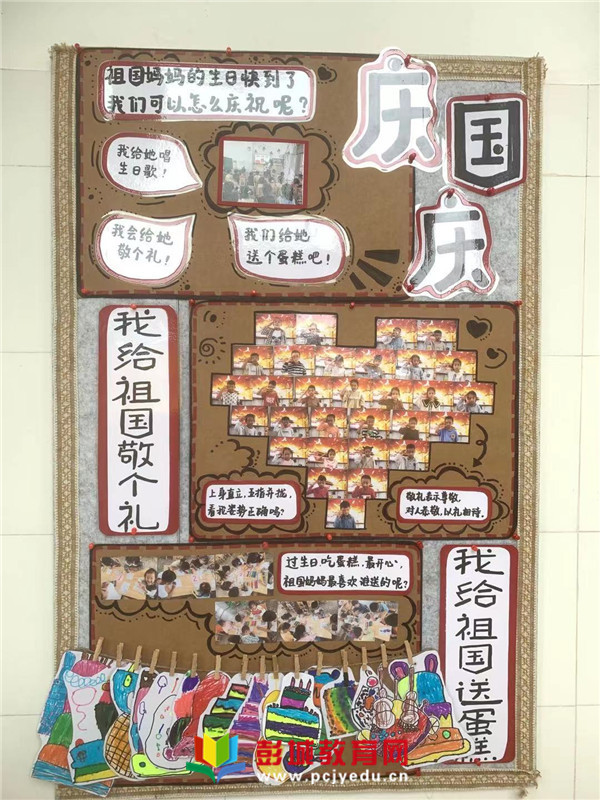 祖国妈妈的生日快到了
我们可以怎么庆祝呢？
庆
国
庆
我给她唱
生日歌！
我会给她
敬个礼！
我们给她
送个蛋糕吧！
我给祖国敬个礼
上身直立，五指并拢，
看我姿势正确吗？
敬礼表示尊敬，
对人恭敬，以礼相待。
过生日，吃蛋糕，最开心，
祖国妈妈最喜欢谁送的呢？
我给祖国送蛋糕
彭城教育网
www.pcjyedu.cn